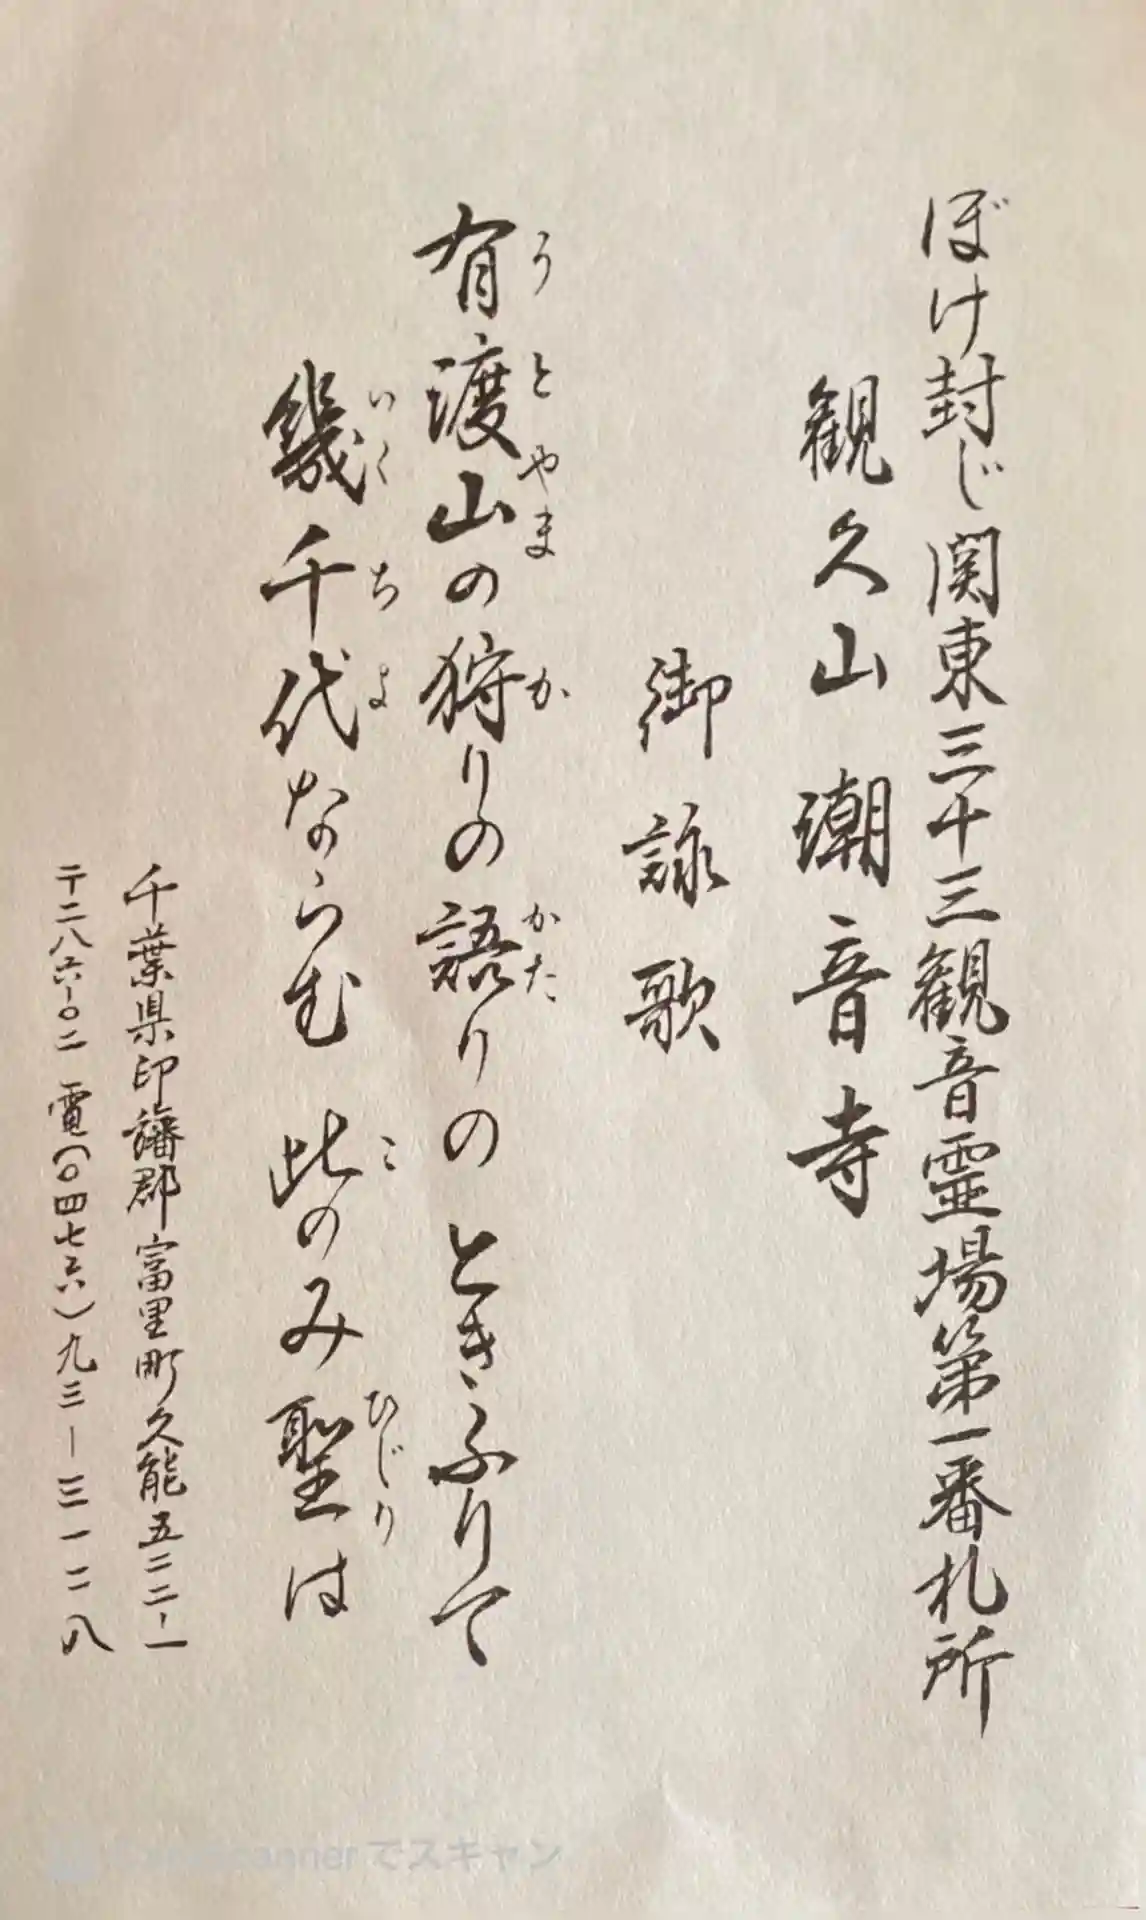 ぼけ封じ関東三十三観音霊場第一番札所
観久山 潮音寺
御詠歌
有渡山の狩りの語りの ときふりて
うとやま か かた
幾千代ならむ 此のみ聖は
いくちよ こ ひじり
千葉県印旛郡富里町久能五二二-一
〒二八六-〇二 電(〇四七六)九三-三一二八
でスキャン